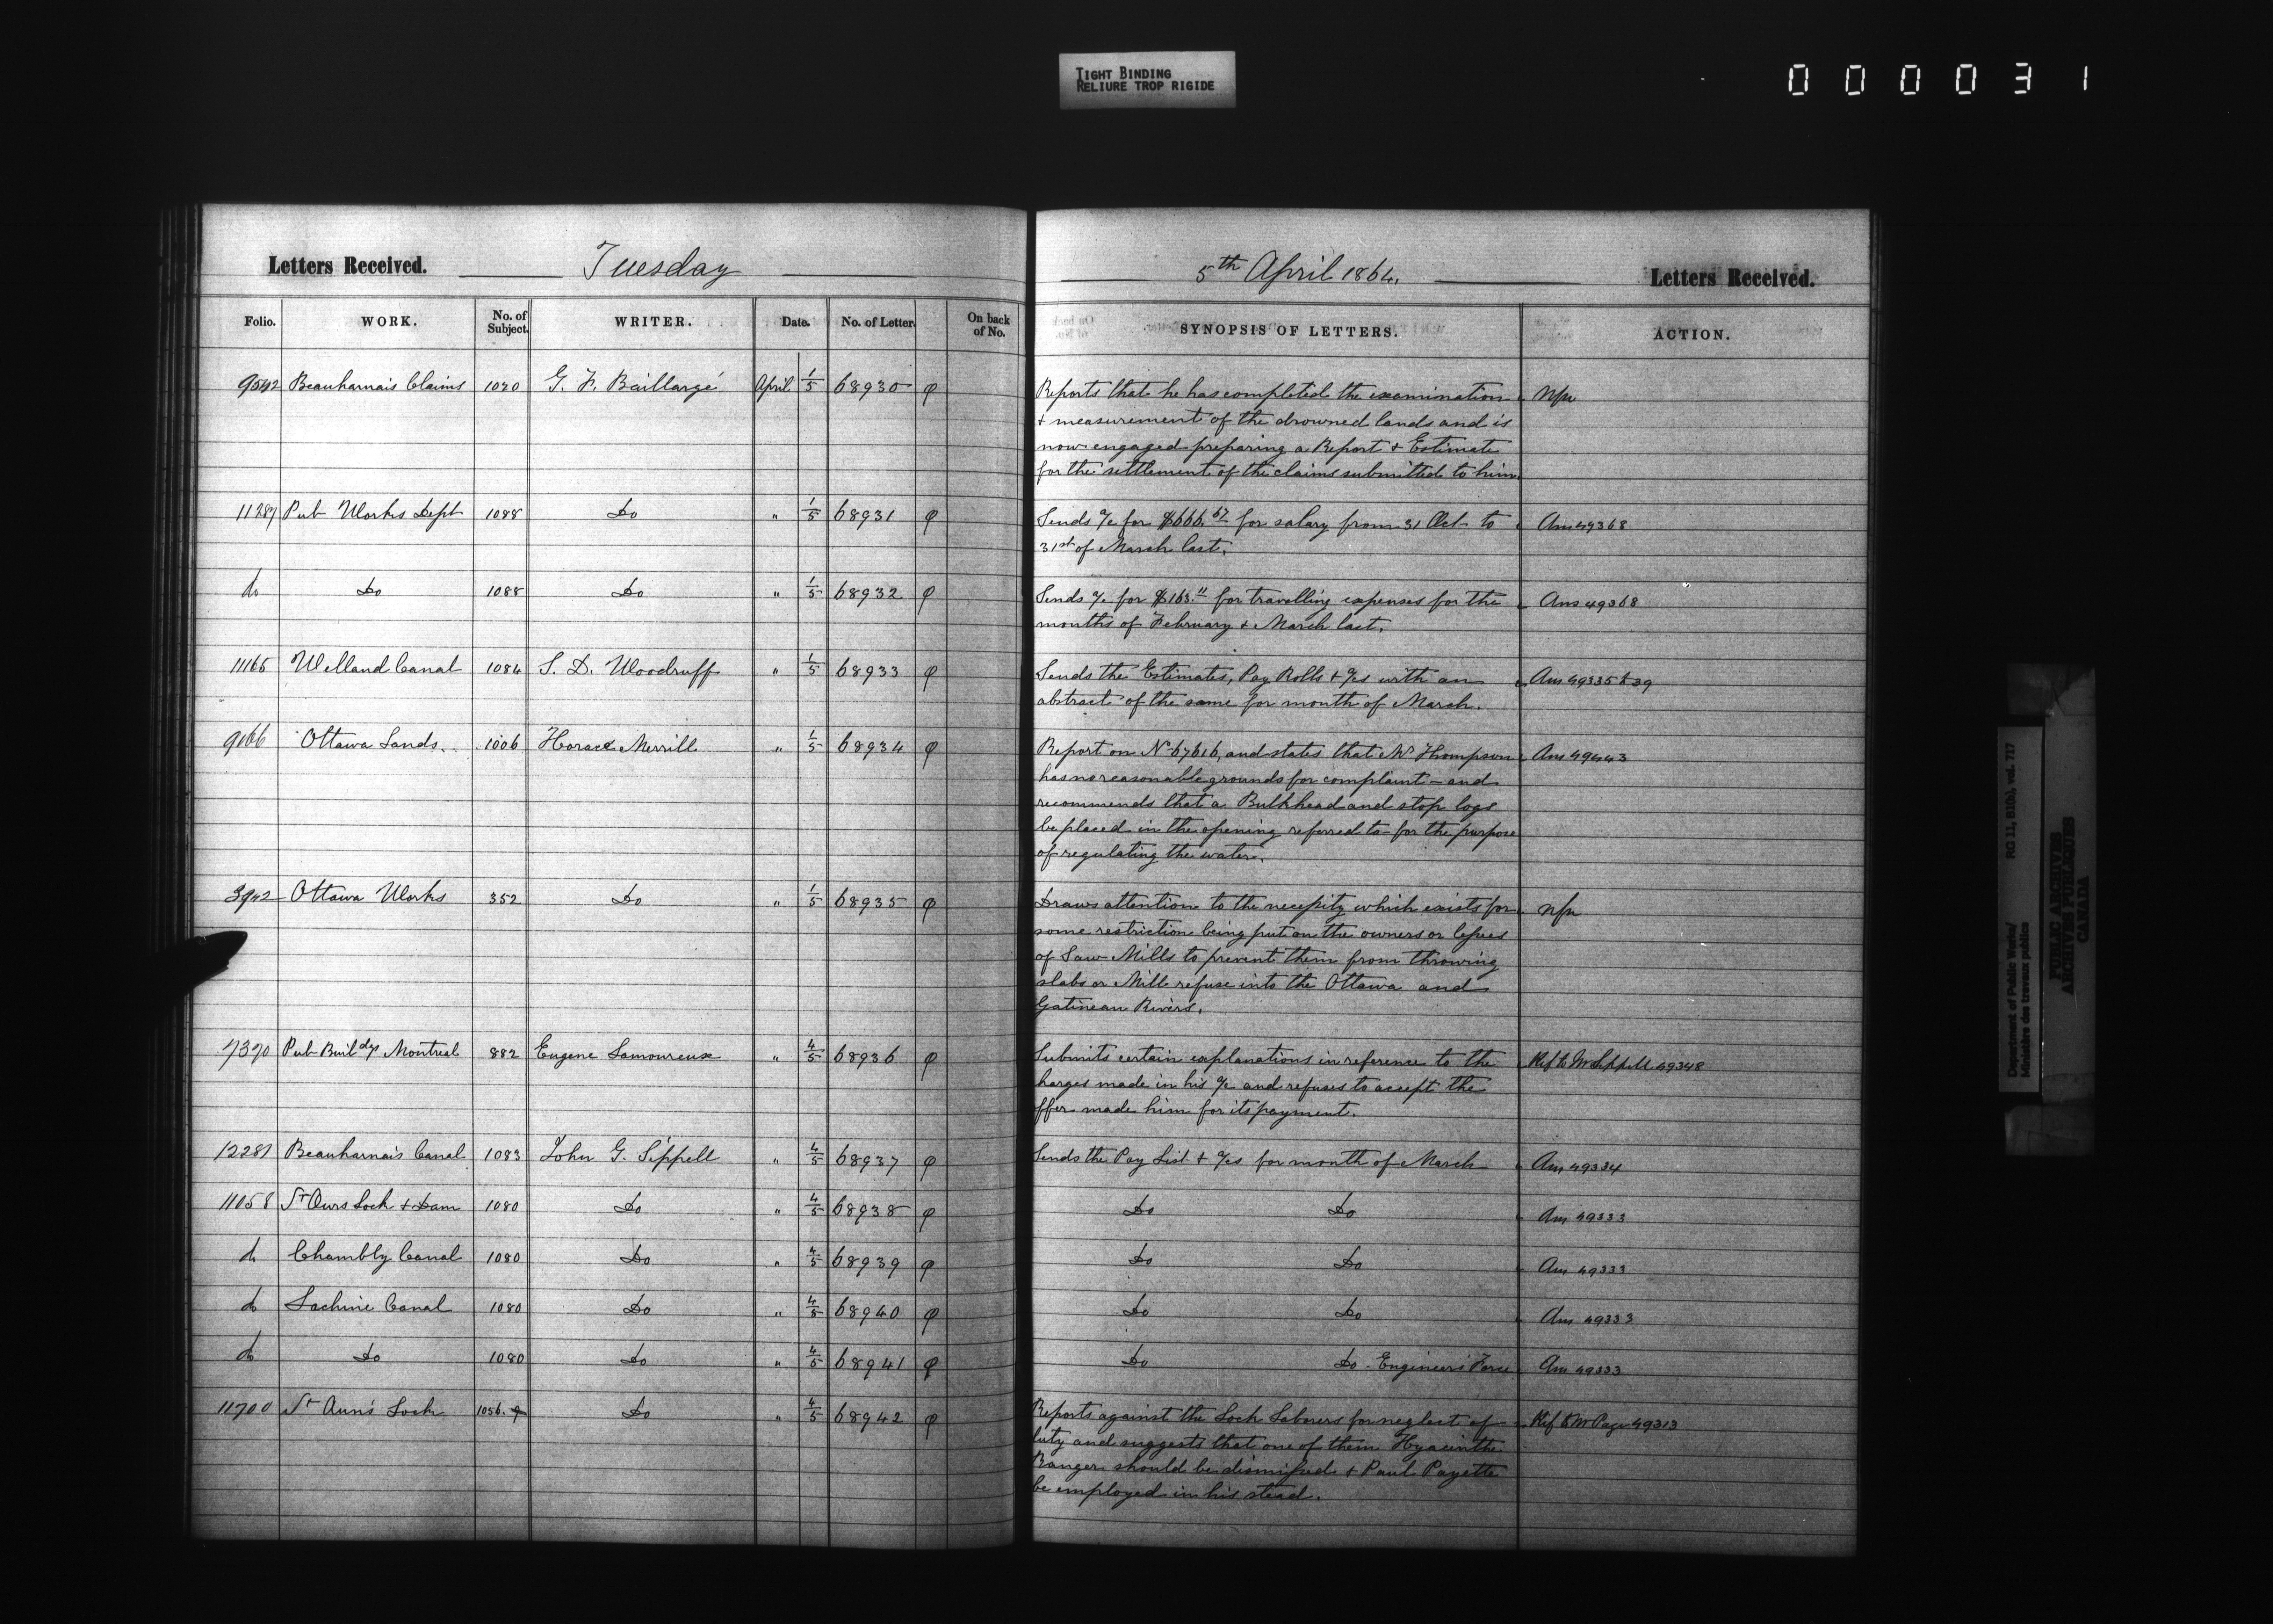 TIGHT BINDING
RELIURE TROP RIGIDE
000031
Letters Received. Tuesday 5th April 1864. Letters Received.
Folio. WORK. No. of Subject. WRITER. Date. No. of Letter. On back of No. SYNOPSIS OF LETTERS. ACTION.
9542 Beauharnais Claims 1020 G. F. Baillargé April 1/5 68930 φ Reports that he has completed the examination Nfn
& measurement of the drowned lands and is
now engaged preparing a Report & Estimate
for the settlement of the claims submitted to him.
11289 Pub Works Dept 1088 Do " 1/5 68931 φ Sends a/c for $666.67 for salary from 31 Oct to Ans 49368
31st of March last.
do Do 1088 Do " 1/5 68932 φ Sends a/c for $163.11 for travelling expenses for the Ans 49368
months of February & March last.
11165 Welland Canal 1084 S. D. Woodruff " 1/5 68933 φ Sends the Estimates, Pay Rolls & a/cs with an Ans 49335 to 39
abstract of the same for month of March.
9166 Ottawa Lands. 1006 Horace Merrill " 1/5 68934 φ Report on No 67616, and states that Mr Thompson Ans 49443
has no reasonable grounds for complaint – and
recommends that a Bulkhead and stop logs
be placed in the opening referred to for the purpose
of regulating the water.
3942 Ottawa Works 352 Do " 1/5 68935 φ Draws attention to the necessity which exists for nfn
some restriction being put on the owners or lessees
of Saw Mills to prevent them from throwing
slabs or Mill refuse into the Ottawa and
Gatineau Rivers.
7370 Pub Buildgs Montreal 882 Eugene Lamoureux " 4/5 68936 φ Submits certain explanations in reference to the Ref to Mr Sippell 49348
harges made in his a/c and refuses to accept the
offer made him for its payment.
12281 Beauharnais Canal 1083 John G. Sippell " 4/5 68937 φ Sends the Pay List & a/cs for month of March Ans 49334
11058 St Ours Lock & Dam 1080 Do " 4/5 68938 φ Do Do Ans 49333
do Chambly Canal 1080 Do " 4/5 68939 φ Do Do Ans 49333
do Lachine Canal 1080 Do " 4/5 68940 φ Do Do Ans 49333
do Do 1080 Do " 4/5 68941 φ Do Do - Engineers' Force Ans 49333
11700 St Ann's Lock 1056. Do " 4/5 68942 φ Reports against the Lock Laborers for neglect of Ref to Mr Page 49313
duty and suggests that one of them Hyacinthe
Ranger should be dismissed & Paul Payette
be employed in his stead.
Department of Public Works/ RG 11, B1(b), vol. 717
Ministère des travaux publics
PUBLIC ARCHIVES
ARCHIVES PUBLIQUES
CANADA